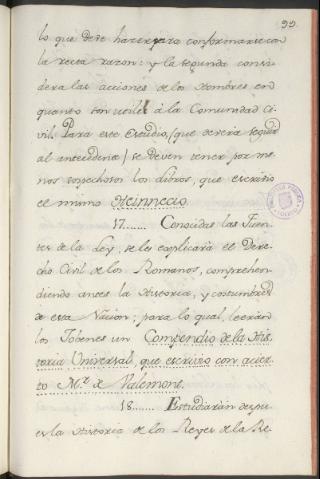 99.
lo que debe hacer para conformarse con
la recta razon: y la segunda consi-
dera las acciones de los Hombres en
quanto son utiles á la Comunidad Ci-
vil. Para este Estudio, (que deverá seguir
al antecedente) se deven tener por me-
nos sospechosos los Libros, que escrivio
el mismo Heinnecio.
17....... Conocidas las Fuen-
tes de la Ley, se les explicará el Dere-
cho Civil de los Romanos, comprehen-
diendo antes la Historia, y costumbres
de esta Nacion; para lo qual, leerán
los Jobenes un Compendio de la His-
toria Universal, que escrivio con acier-
to M.r de Valemont.
18....... Estudiarán despu-
es la Historia de los Reyes de la Re-